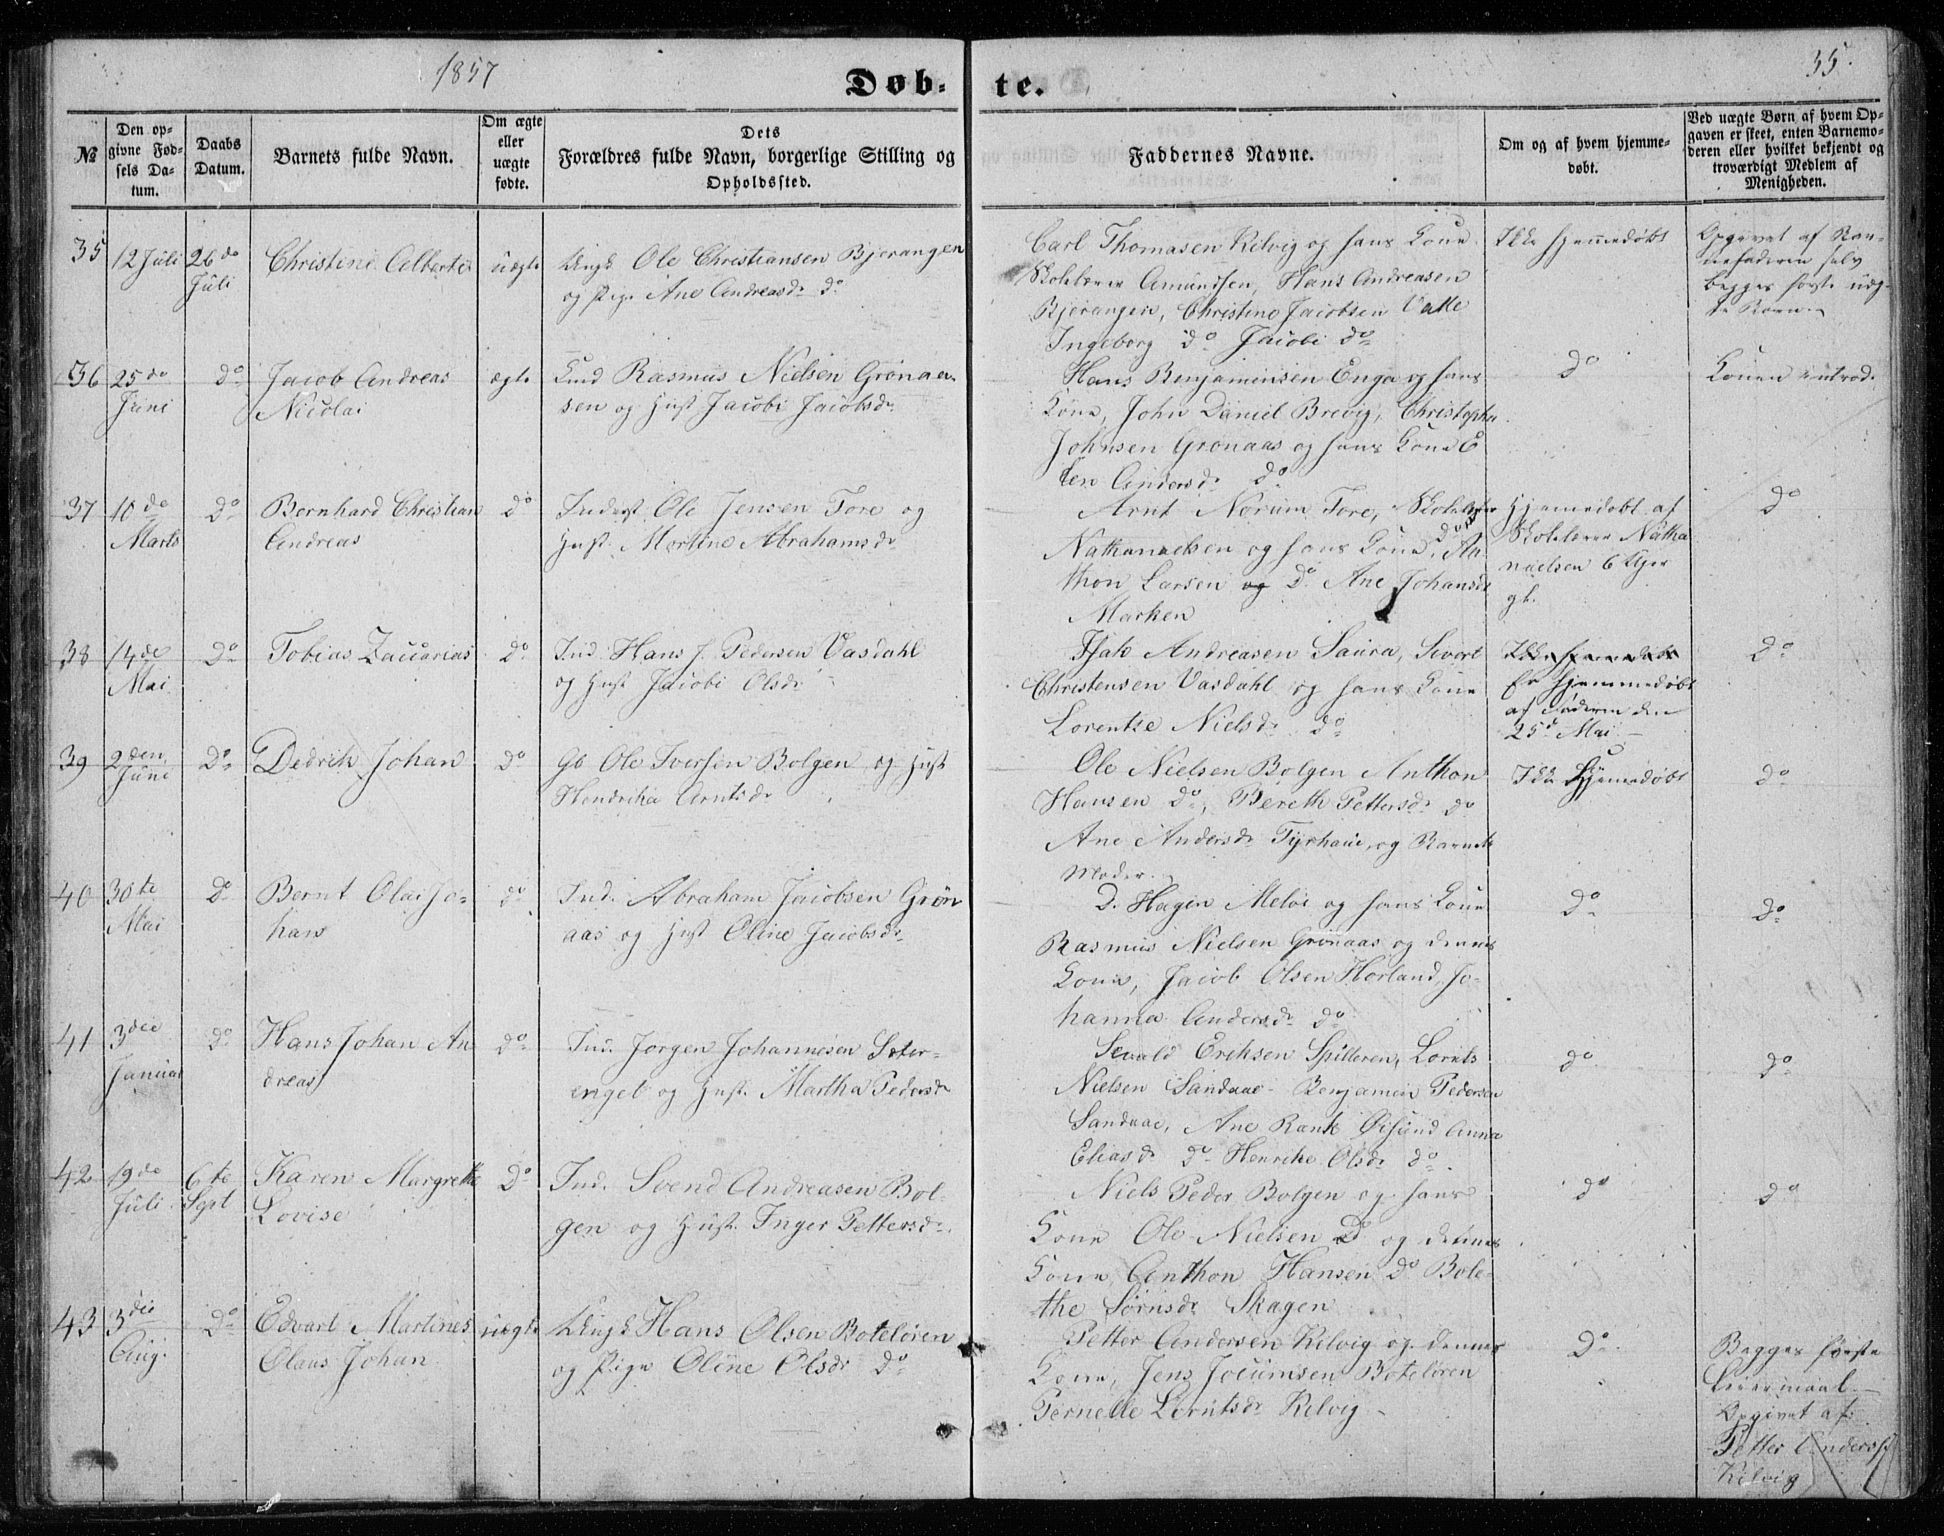 1857
Døb-
te.
35.
№
Den op-
givne Fød-
sels Da-
tum.
Daabs
Datum.
Barnets fulde Navn.
Om ægte
eller
uægte
fødte.
Dets
Forældres fulde Navn, borgerlige Stilling og
Opholdssted.
Faddernes Navne.
Om og af hvem hjemme-
døbt.
Ved uægte Børn af hvem Op-
gaven er skeet, enten Barnemo-
deren eller hvilket bekjendt og
troværdigt Medlem af
Menigheden.
35
12 Juli
26 de
Juli
Christine Alberte
uægte
Ungk Ole Christiansen Bjerangen
og Pige Ane Andreasdr do
Carl Thomasen Kilvig og hans Kone
Skolelærer Amundsen, Hans Andreasen
Bjerangen, Christine Jacobsen Valle
Ingeborg do Jacobi do
Ikke hjemmedøbt
Opgivet af Bar-
nefaderen selv
begges første uæg-
te Børn
36
25 de
Juni
do
Jacob Andreas
Nicolai
ægte
Ind Rasmus Nielsen Grønaa-
sen og Hust Jacobi Jacobsdr
Hans Benjaminsen Enga og hans
Kone, John Daniel Brevig, Christopher
Johnsen Grønaas og hans Kone E
len Andersdr do
do
Konen introd.
37
10 de
Marts
do
Bernhard Christian
Andreas
do
Inderst Ole Jensen Tore og
Hust. Martine Abrahamsdr
Arnt Norum Tore, Skolelærer
Nathanaelsen og hans Kone, do An
thon Larsen og do Ane Johansdr
Marken
Hjemmedøbt af
Skolelærer Natha
naelsen 6 Uger
gl.
do
38
14 de
Mai
do
Tobias Zaccarias
do
Ind Hans J. Pedersen Vasdahl
og Hust Jacobi Olsdr
Isak Andreasen Saura, Sivert
Christensen Vasdahl og hans Kone
Lorentze Nielsdr do
Ikke hjemmedøbt
Er hjemmedøbt
af Faderen den
25d Mai
do
39
2den
Juni
do
Dedrik Johan
do
Gb Ole Iversen Bolgen og Hust
Hendrika Arntsdr
Ole Nielsen Bolgen Anthon
Hansen do, Bereth Pettersdr do
Ane Andersdr Fyrhaue, og Barnets
Moder.
Ikke Hjemmedøbt
do
40
30te
Mai
do
Bernt Olai Jo-
han
do
Ind. Abraham Jacobsen Grøn
aas og Hust Oline Jacobsdr
D. Hagen Meløe og hans Kone
Rasmus Nielsen Grønaas og dennes
Kone, Jacob Olsen Horland, Jo-
hanna Andersdr do
do
do
41
3die
Januar
do
Hans Johan An
dreas
do
Ind. Jørgen Johannesen Sæter-
enget og Hust. Martha Pedersdr
Sevald Eriksen Spilleren, Lornts
Nielsen Sandaae Benjamin Pedersen
Sandaae, Ane Rank Øisund Anna
Eliasdr do Henrike Olsdr do
do
do
42
19 de
Juli
6te
Sept
Karen Margrethe
Lovise
do
Ind. Svend Andreasen Bol-
gen og Hust. Inger Pettersdr
Niels Peder Bolgen og hans
Kone Ole Nielsen do og dennes
Kone, Anthon Hansen do Bole-
the Sørnsdr Skagen
do
do
43
3die
Aug.
do
Edvart Martines
Olaus Johan
uægte
Ungk Hans Olsen Boteløren
og Pige Oline Olsdr do
Petter Andersen Kilvig og dennes
Kone, Jens Jocumsen Boteløren
Pernelle Lorntsdr Kilvig
do
Begges første
Leiermaal.
Opgivet af:
Petter Anders
Kilvig